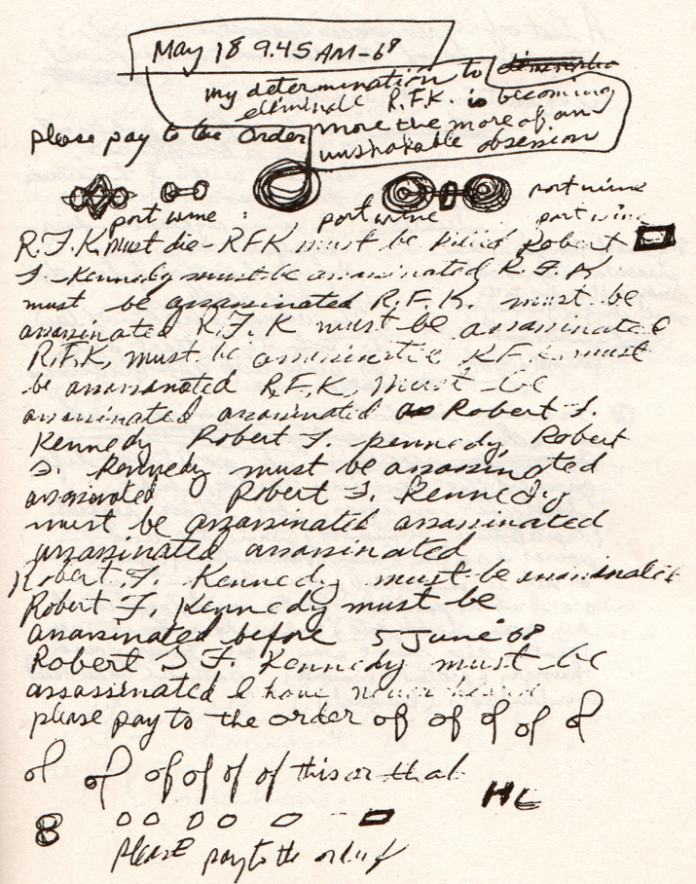 May 18 9.45 AM-68
my determination to
eliminate R.F.K. is becoming
please pay to the order
more the more of an
unshakable obsession
port wine
port wine : port wine port wine
R.F.K. must die - RFK must be killed Robert
F. Kennedy must be assassinated R.F.K
must be assassinated R.F.K. must be
assassinated R.F.K must be assassinated
R.F.K, must be assassinated R.F.K. must
be assassinated R.F.K. Must be
assassinated assassinated Robert F.
Kennedy Robert F. Kennedy, Robert
F. Kennedy must be assassinated
assassinated Robert F. Kennedy
must be assassinated assassinated
assassinated assassinated
Robert F. Kennedy must be assassinated
Robert F, Kennedy must be
assassinated before 5 June 68
Robert F. Kennedy must be
assassinated I have never heard
please pay to the order of of of of of
of of of of of of this or that
HL
8 o o o o o
please pay to the order of